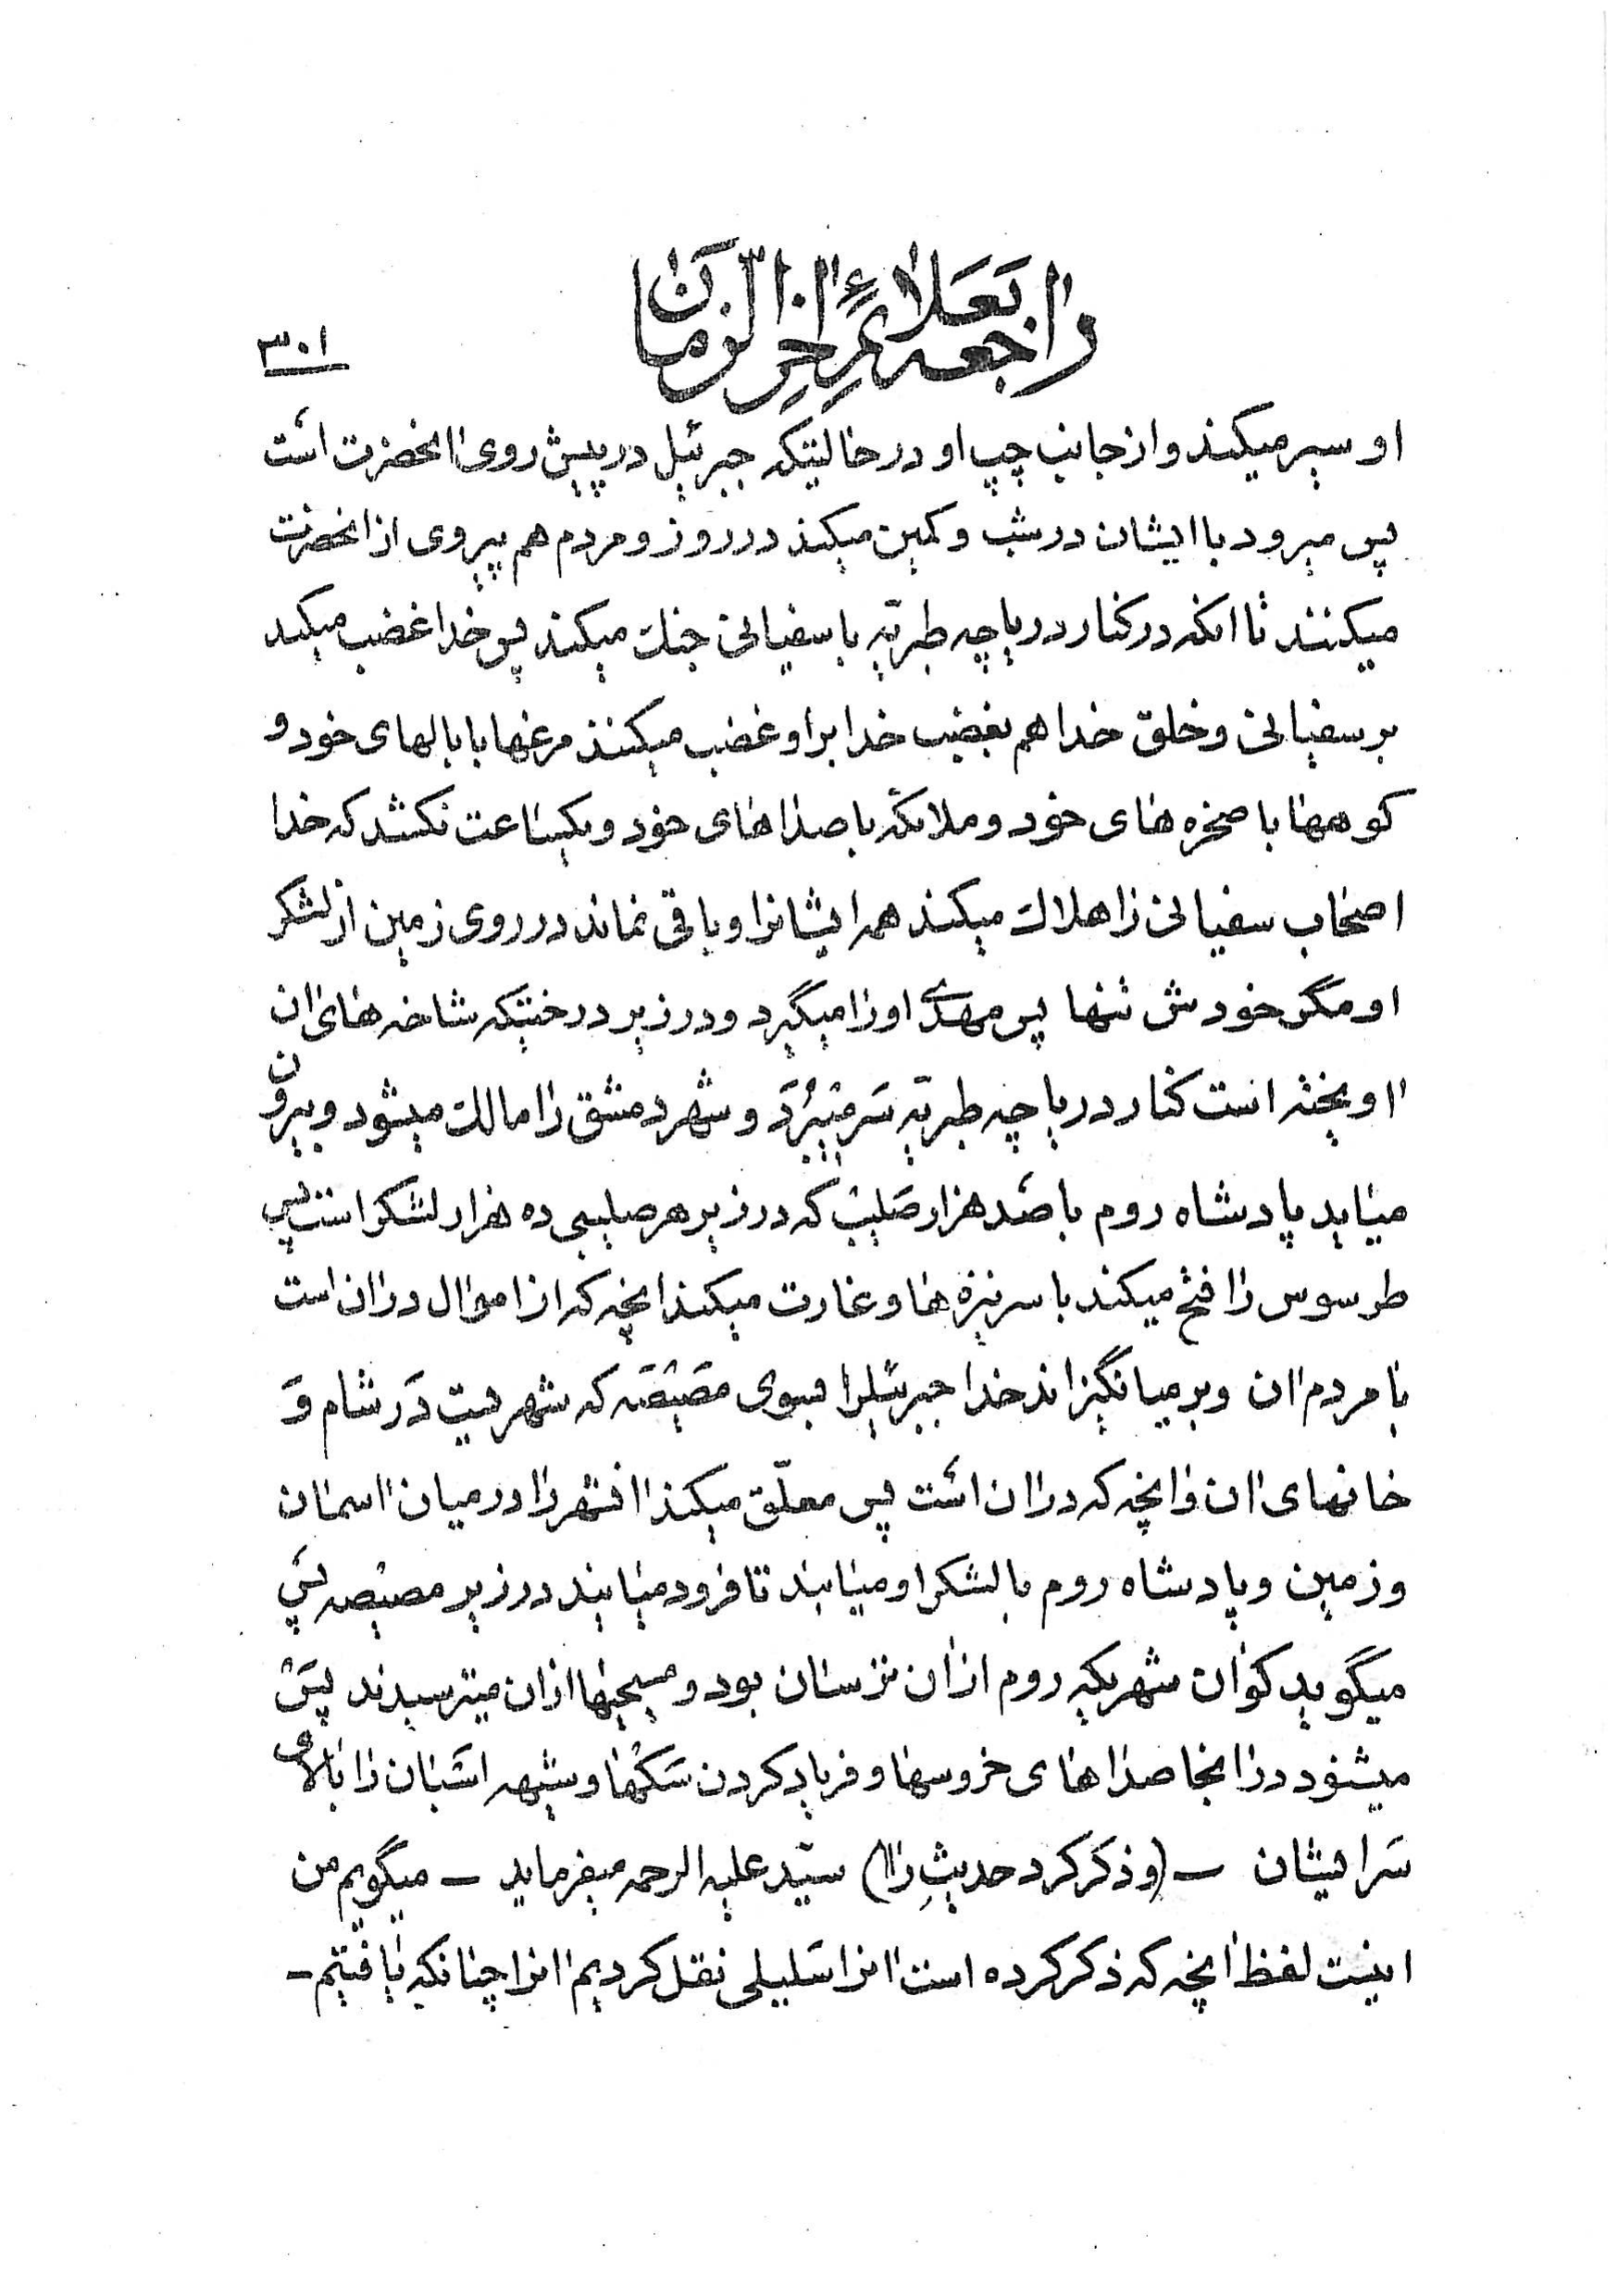 راجعه بعلائم آخر الزمان
۳۰۱
او سیر میکند و از جانب چپ او در حالیتکه جبرئیل در پیش روی انحضرت است
پس میرود با ایشان در شب و کمین میکند در روز و مردم هم پیروی از انحضرت
میکنند تا انکه در کنار دریاچه طبریّه با سفیانی جنك میکند پس خدا غضب میکند
بر سفیانی و خلق خدا هم بغضب خدا بر او غضب میکنند مرغها با بالهای خود و
کوهها با صخره های خود و ملائکه با صداهای خود و یکساعت نکشد که خدا
اصحاب سفیانی را هلاك میکند همه ایشانرا و باقی نماند در روی زمین از لشکر
او مگر خودش تنها پس مهدی اورا میگیرد و در زیر درختیکه شاخه های ان
اویخته است کنار دریاچه طبریّه سَر میبُرَد و شهر دمشق را مالك میشود و بیرون
میاید پادشاه روم با صَد هزار صَلیب که در زیر هر صلیبی ده هزار لشکر است پس
طرسوس را فتح میکند با سر نیزه ها و غارت میکند انچه که از اموال در ان است
با مردم ان وبر میانگیزاند خدا جبرئیلرا بسوی مصَیصَه که شهریست دَر شام وَ
خانهای ان و انچه که در ان است پس معلّق میکند انشهر را در میان اسمان
و زمین و پادشاه روم با لشکر او میایند تا فرود میایند در زیر مصیصه پس
میگوید کو ان شهریکه روم از ان ترسان بود و مسیحیها از ان میترسیدند پسَ
میشنود در انجا صداهای خروسها و فریاد کردن سَگها و شیهه اسَبان را بالای
سَر ایشان – (و ذکر کرد حدیثِ را) سیّد علیه الرحمه میفرماید – میگویم من
اینست لفظ انچه که ذکر کرده است انرا سَلیلی نقل کردیم انرا چنانکه یافتیم –